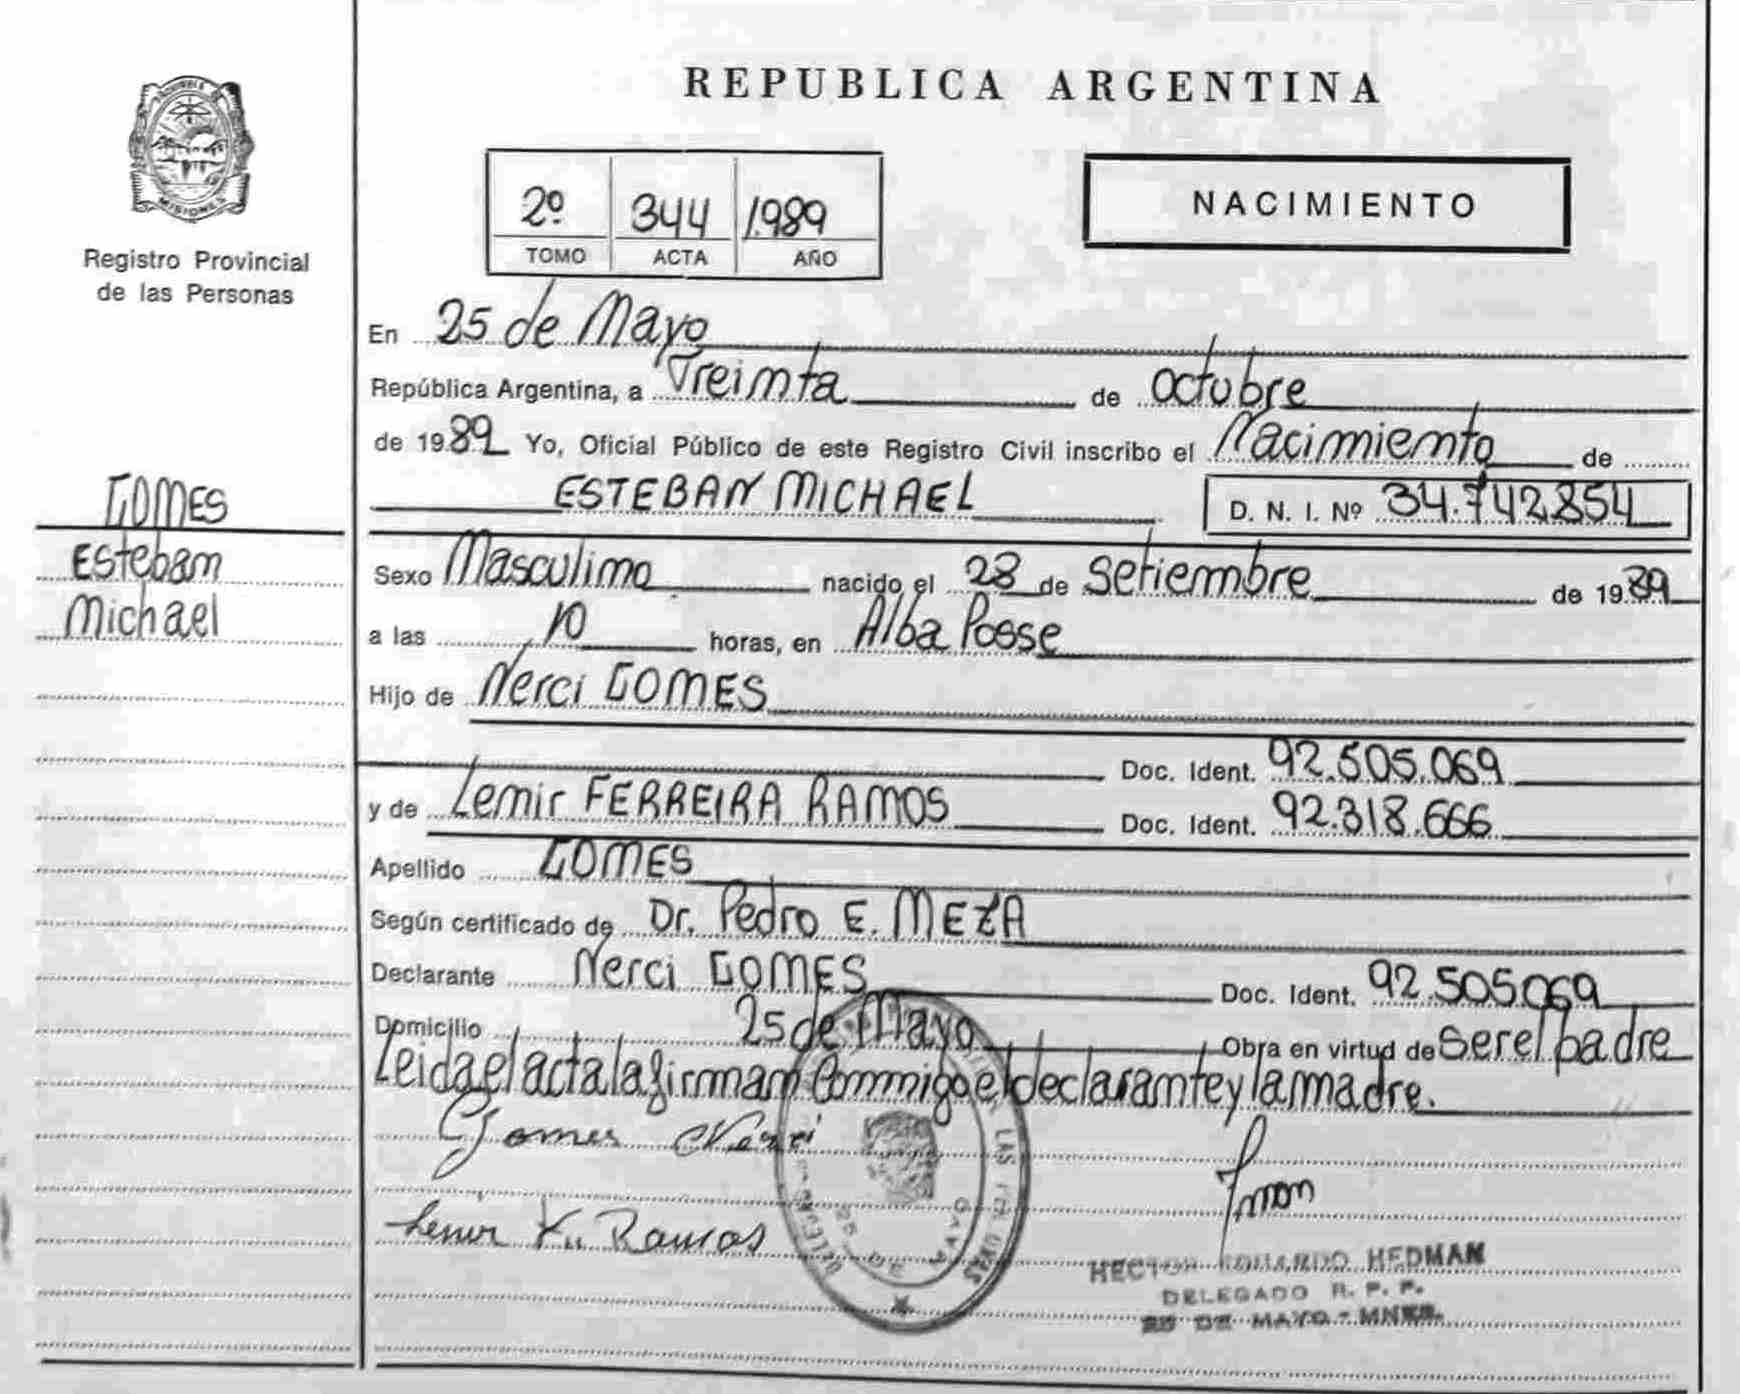 REPUBLICA ARGENTINA
MISIONES
Registro Provincial
de las Personas
2º 344 1.989
TOMO ACTA AÑO
NACIMIENTO
En 25 de Mayo
República Argentina, a Treinta de octubre
de 1989 Yo, Oficial Público de este Registro Civil inscribo el Nacimiento de
GOMES
Esteban
Michael
ESTEBAN MICHAEL D. N. I. Nº 34.742.854
Sexo Masculino nacido el 28 de Setiembre de 1989
a las 10 horas, en Alba Posse
Hijo de Nerci GOMES
Doc. Ident. 92.505.069
y de Lenir FERREIRA RAMOS Doc. Ident. 92.318.666
Apellido GOMES
Según certificado de Dr. Pedro E. MEZA
Declarante Nerci GOMES Doc. Ident. 92.505.069
Domicilio 25 de Mayo Obra en virtud de ser el padre
Leida el acta la firman conmigo el declarante y la madre.
Gomes Nerci
Lenir Ramos
HECTOR EDUARDO HEDMAN
DELEGADO R. P. P.
25 DE MAYO - MNES.